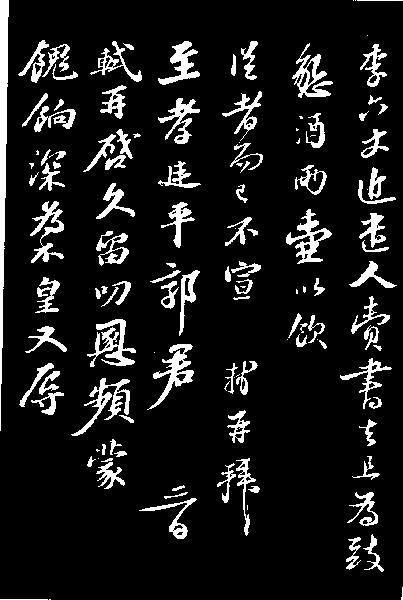 李六丈近遣人賫書去且為致
懇酒兩壺以飲
從者而已不宣 軾再拜
至孝廷平郭君 三日
軾再啓久留叨恩頻蒙
餽餉深為不皇又辱